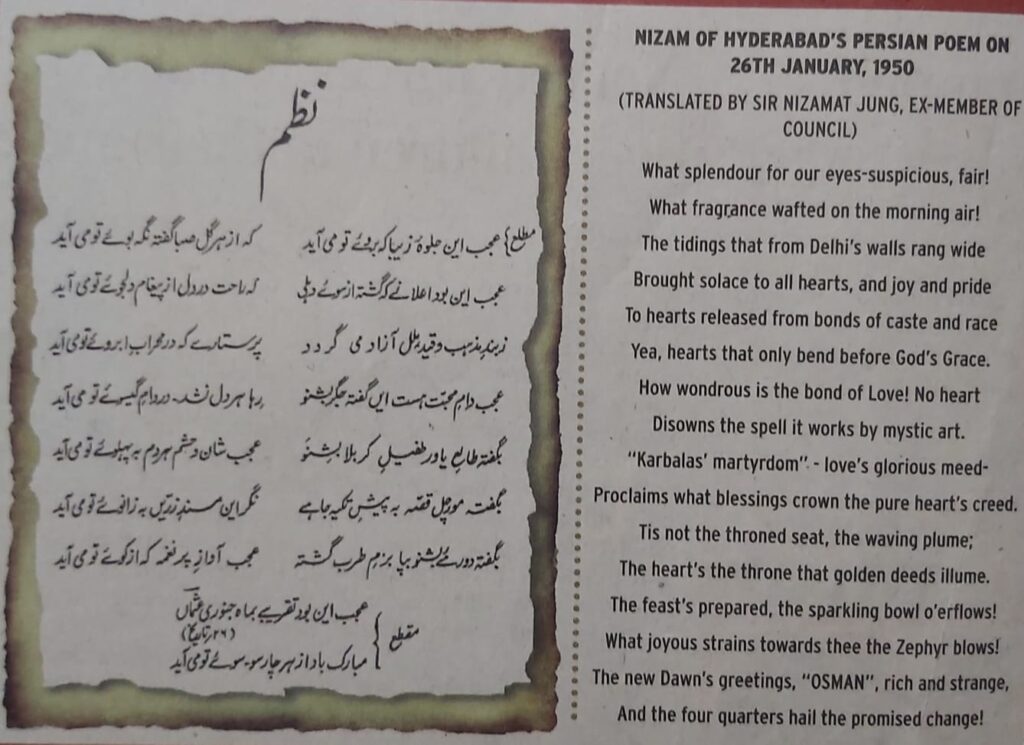 نظم
مطلع } عجب این جلوۂ زیبا کہ بروئے تو می آید کہ از ہر گل صبا گفتہ نگہ بوئے تو می آید
عجب این بود اعلانے کہ گشتہ از سوئے دہلی کہ راحت در دل از پیغام دلجوئے تو می آید
زبندِ مذہب و قیدِ ملل آزاد می گردد پرستارے کہ در محرابِ ابروئے تو می آید
عجب دامِ محبت ہست ایں گفتہ جگر بشنو رہا ہر دل نشد۔ در دامِ گیسوئے تو می آید
بگفتہ طالعِ یاور طفیلِ کربلا بشنو عجب شان و حشم ہر دم بہ پہلوئے تو می آید
بگفتہ مورچل قصہ بہ پیشِ تکیہ جاہے نگر این مسندِ زریں بہ زانوئے تو می آید
بگفتہ دورے بشنو بپا بزمِ طرب گشتہ عجب آوازِ پر نغمہ کہ از کوئے تو می آید
مقطع } عجب این بود تقریبے بماہ جنوری عثماںؔ
(۲۶ تاریخ)
مبارک باد از ہر چار سو۔ سوئے تو می آید
NIZAM OF HYDERABAD'S PERSIAN POEM ON
26TH JANUARY, 1950
(TRANSLATED BY SIR NIZAMAT JUNG, EX-MEMBER OF
COUNCIL)
What splendour for our eyes-suspicious, fair!
What fragrance wafted on the morning air!
The tidings that from Delhi's walls rang wide
Brought solace to all hearts, and joy and pride
To hearts released from bonds of caste and race
Yea, hearts that only bend before God's Grace.
How wondrous is the bond of Love! No heart
Disowns the spell it works by mystic art.
"Karbalas' martyrdom" - love's glorious meed-
Proclaims what blessings crown the pure heart's creed.
Tis not the throned seat, the waving plume;
The heart's the throne that golden deeds illume.
The feast's prepared, the sparkling bowl o'erflows!
What joyous strains towards thee the Zephyr blows!
The new Dawn's greetings, "OSMAN", rich and strange,
And the four quarters hail the promised change!